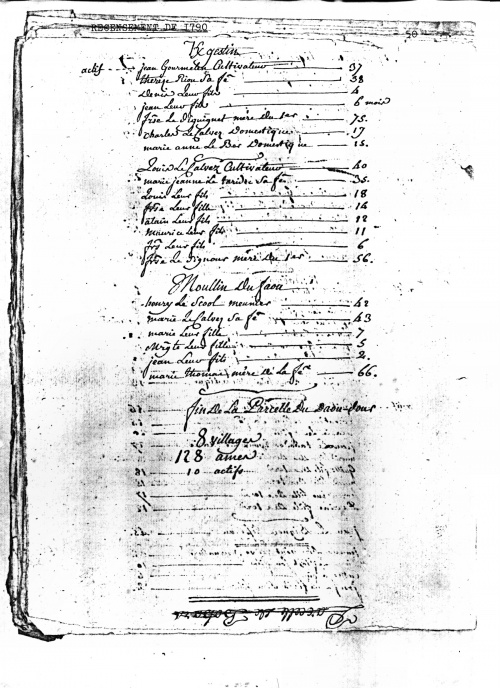 RECENSEMENT DE 1790
50
Kgestin
actif jean Gourmelen Cultivateur 37
therese Riou Sa fe 38
Denis Leur fils 4
jean Leur fils 6 mois
frse Le Diguignet mère Du 1er 75.
Charles Le Calvez Domestique 17
marie anne Le Bec Domestique 15.
Louis Le Calvez Cultivateur 40
marie jeanne Le taridec Sa fe 35.
Louis Leur fils 18
frse Leur fille 14
alain Leur fils 12
maurice Leur fils 11
frs Leur fils 6
frse Le Vigouroux mère Du 1er 56.
Moullin Du faou
henry Le Scool meunier 42
marie Le Calvez Sa fe 43
marie Leur fille 7
Mrgte Leur fille 5
jean Leur fils 2.
marie thomas mère de La fe 66.
fin De La Parcelle Du Daou Dour
8 villages
128 ames
10 actifs